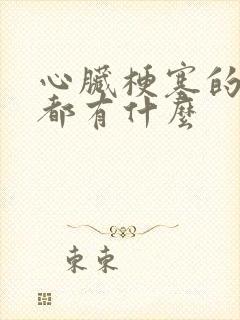 心臟梗塞的
都有什麼
東東